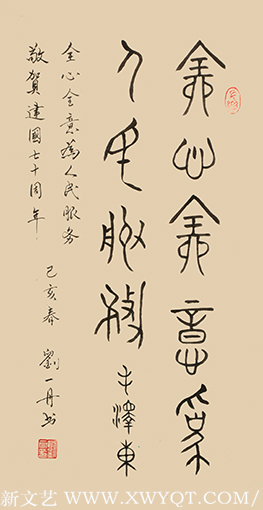 全心全意为
人民服务 毛泽东
全心全意為人民服务
敬賀建國七十周年
己亥春 劉一丹书
新文艺 WWW.XWYQT.COM/